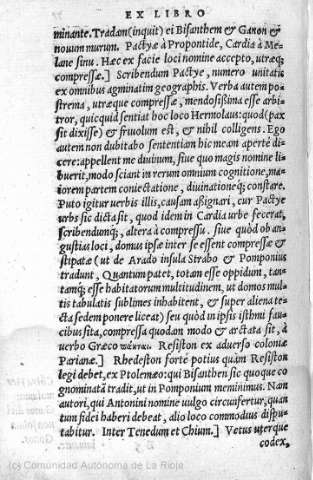 EX LIBRO
minante. Tradam (inquit) ei Bisanthem & Ganon &
nouum murum. Pactyæ à Propontide, Cardia à Me-
lane sinu. Hæc ex facie loci nomine accepto, utræq;
compressæ.] Scribendum Pactye, numero unitatis
ex omnibus agminatim geographis. Verba autem po-
strema, utræque compressæ, mendosissima esse arbi-
tror, quicquid sentiat hoc loco Hermolaus: quod (pax
sit dixisse) & friuolum est, & nibil colligens. Ego
autem non dubitabo sententiam hic meam apertè di-
cere: appellent me diuinum, siue quo magis nomine li-
buerit, modo sciant in rerum omnium cognitione, ma-
iorem partem coniectatione, diuinationeq; constare.
Puto igitur uerbis illis, causam aßignari, cur Pactye
urbs sic dicta sit, quod idem in Cardia urbe fecerat,
scribendumq;, altera à compressu. siue quòd ob an-
gustias loci, domus ipsæ inter se essent compressæ &
stipatæ (ut de Arado insula Strabo & Pomponius
tradunt, Quantum patet, totam esse oppidum, tan-
tamq; esse habitatorum multitudinem, ut domos mul-
tis tabulatis sublimes inhabitent, & super aliena te-
cta sedem ponere liceat) seu quòd in ipsis isthmi fau-
cibus sita, compressa quodam modo & arctata sit, à
uerbo Græco Resiston ex aduerso coloniæ
Parianæ.] Rhedeston fortè potius quàm Resiston
legi debet, ex Ptolemæo: qui Bisanthen sic quoque co-
gnominatā tradit, ut in Pomponium meminimus. Nam
autori, qui Antonini nomine uulgo circumfertur, quan-
tum fidei haberi debeat, alio loco commodius dispu-
tabitur. Inter Tenedum et Chium.] Vetus uterque
codex,
(c) Comunidad Autónoma de La Rioja